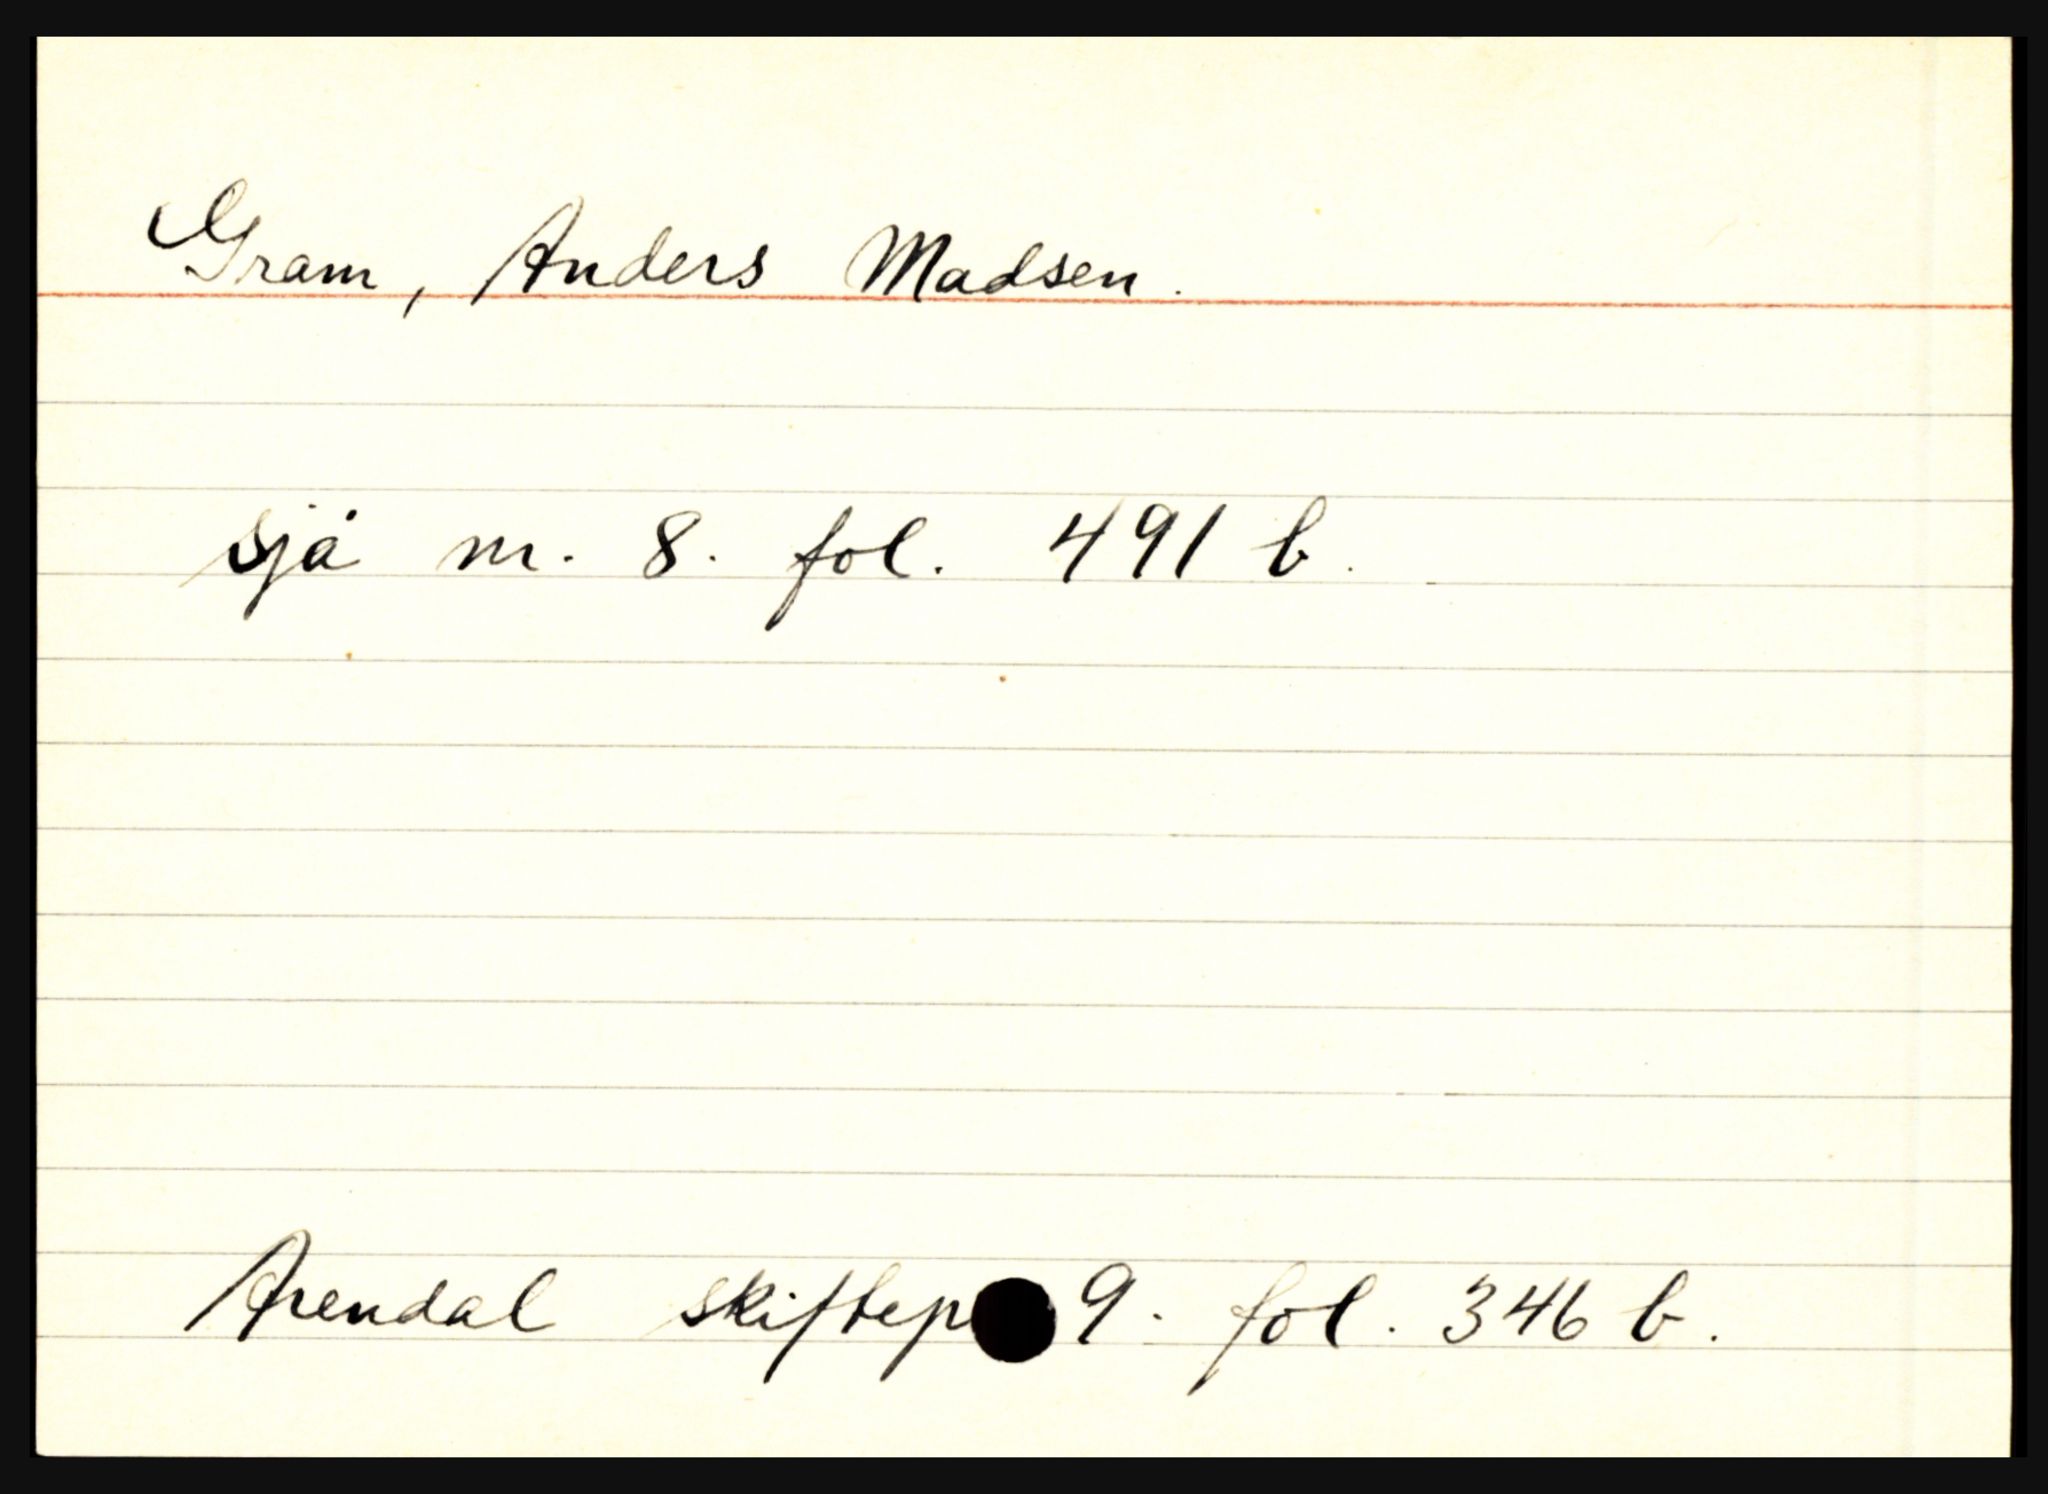 Gram, Anders Madsen.
sjå nr. 8. fol. 491 b.
Arendal skiftep 9. fol. 346 b.